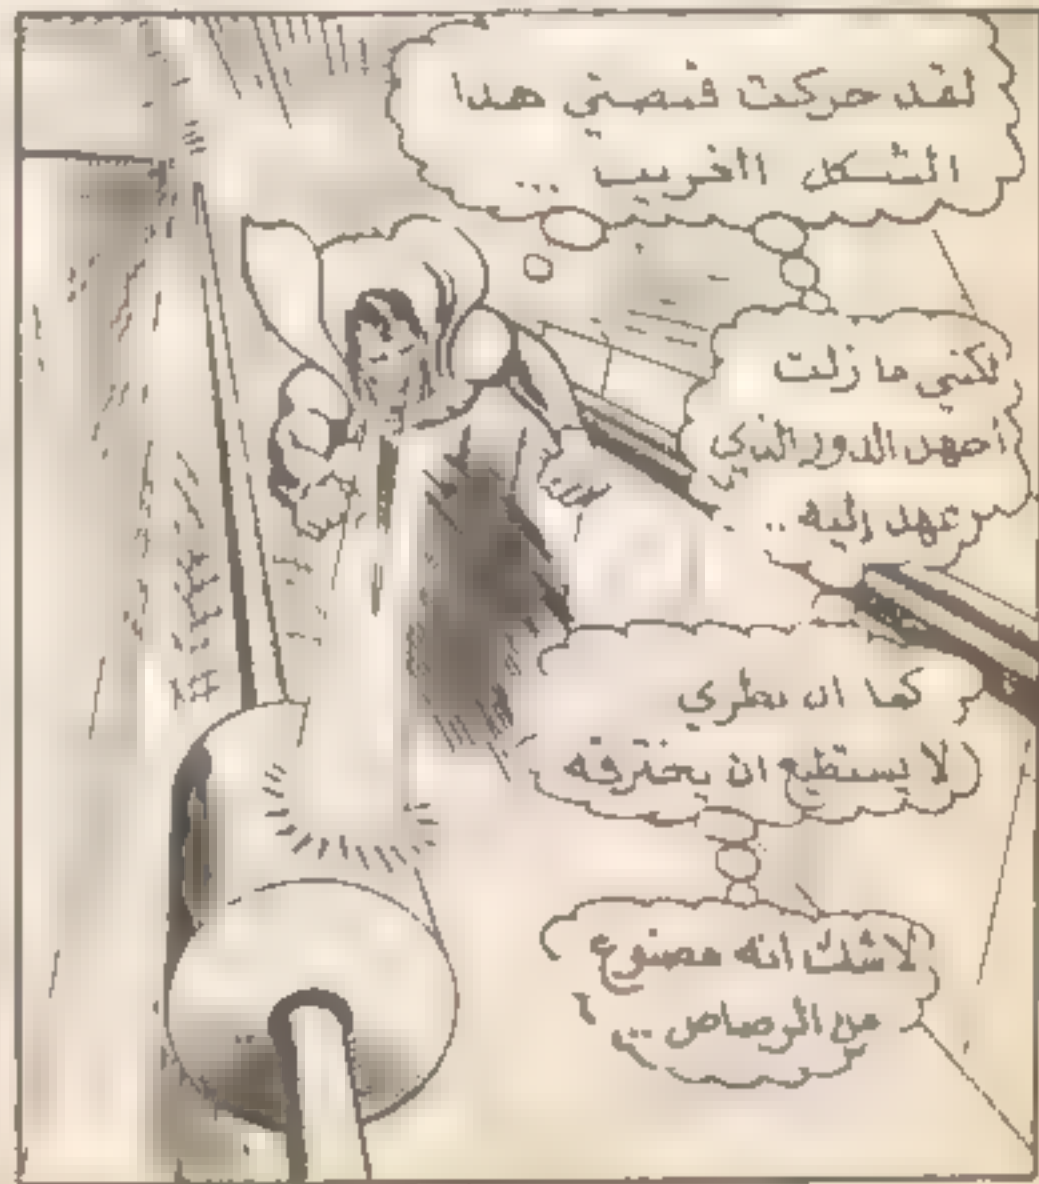 لقد حركت قبضتي هذا
الشكل الغريب ...
لكني ما زلت
اجهل الدور الذي
عهد إليه ..
كما ان نظري
لا يستطيع ان يخترقه
لاشك انه مصنوع
من الرصاص ...